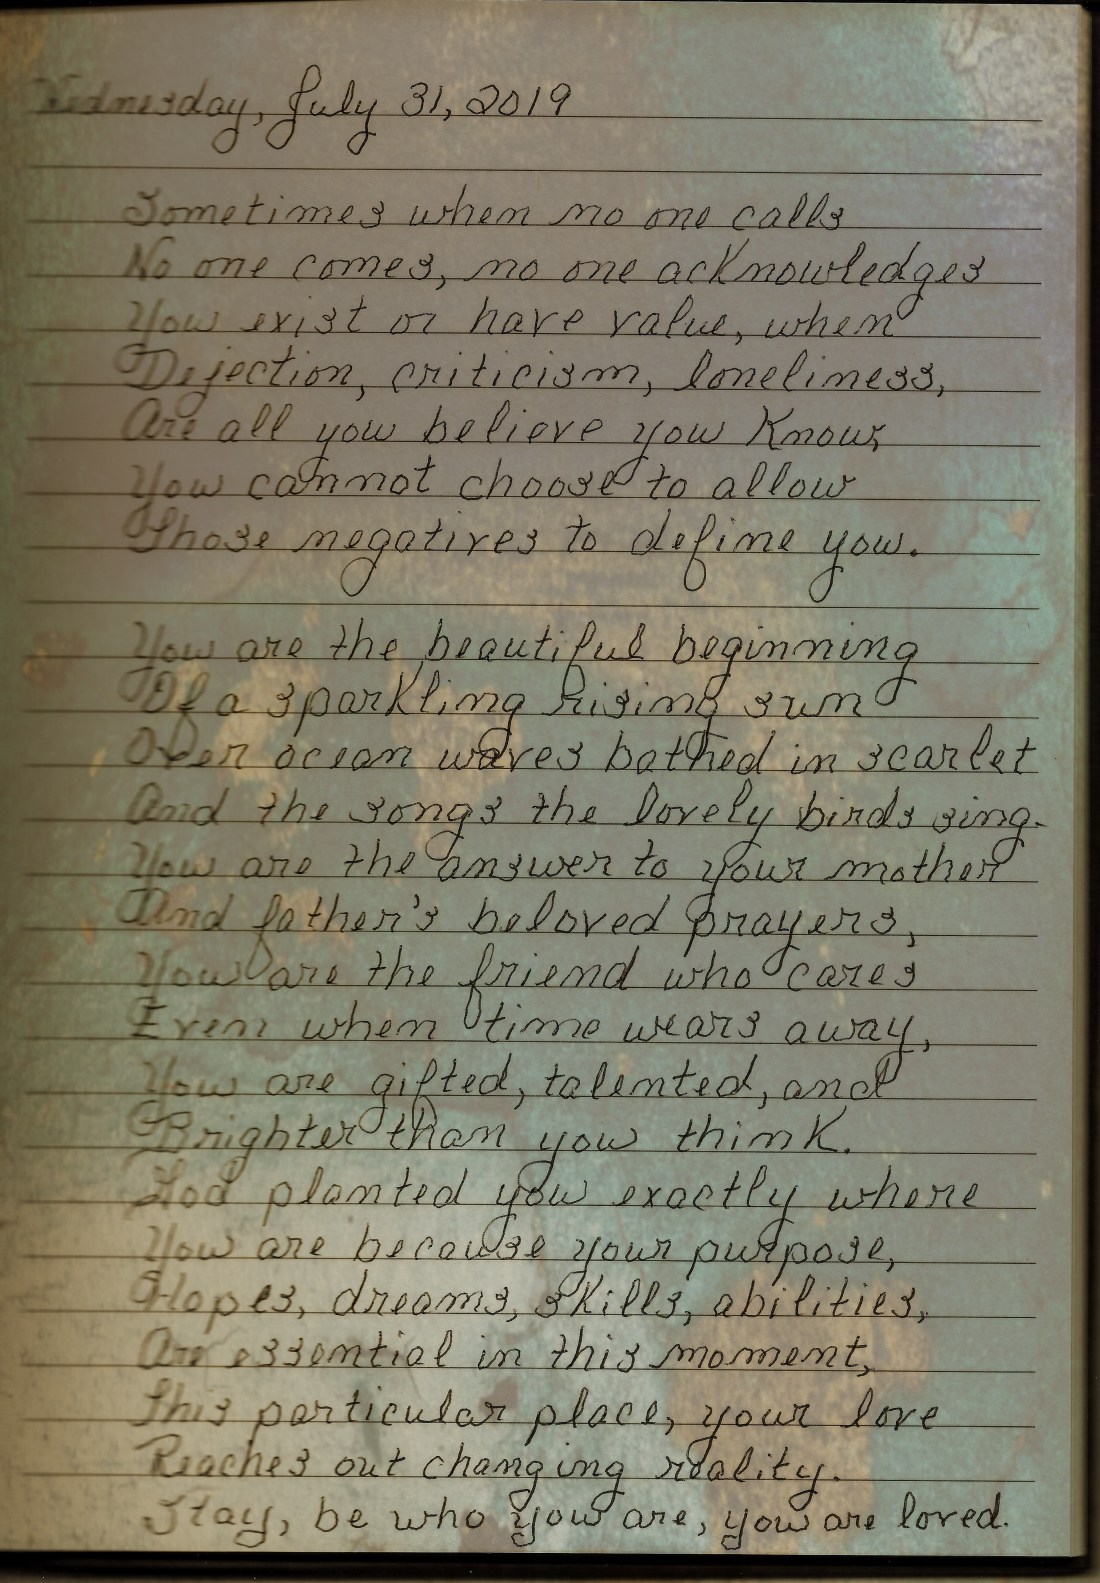 Wednesday, July 31, 2019
Sometimes when no one calls
No one comes, no one acknowledges
You exist or have value, when
Dejection, criticism, loneliness,
Are all you believe you know,
You cannot choose to allow
Those negatives to define you.
You are the beautiful beginning
Of a sparkling rising sun
Over ocean waves bathed in scarlet
And the songs the lovely birds sing.
You are the answer to your mother
And father's beloved prayers,
You are the friend who cares
Even when time wears away,
You are gifted, talented, and
Brighter than you think.
God planted you exactly where
You are because your purpose,
Hopes, dreams, skills, abilities,
Are essential in this moment,
This particular place, your love
Reaches out changing reality.
Stay, be who you are, you are loved.